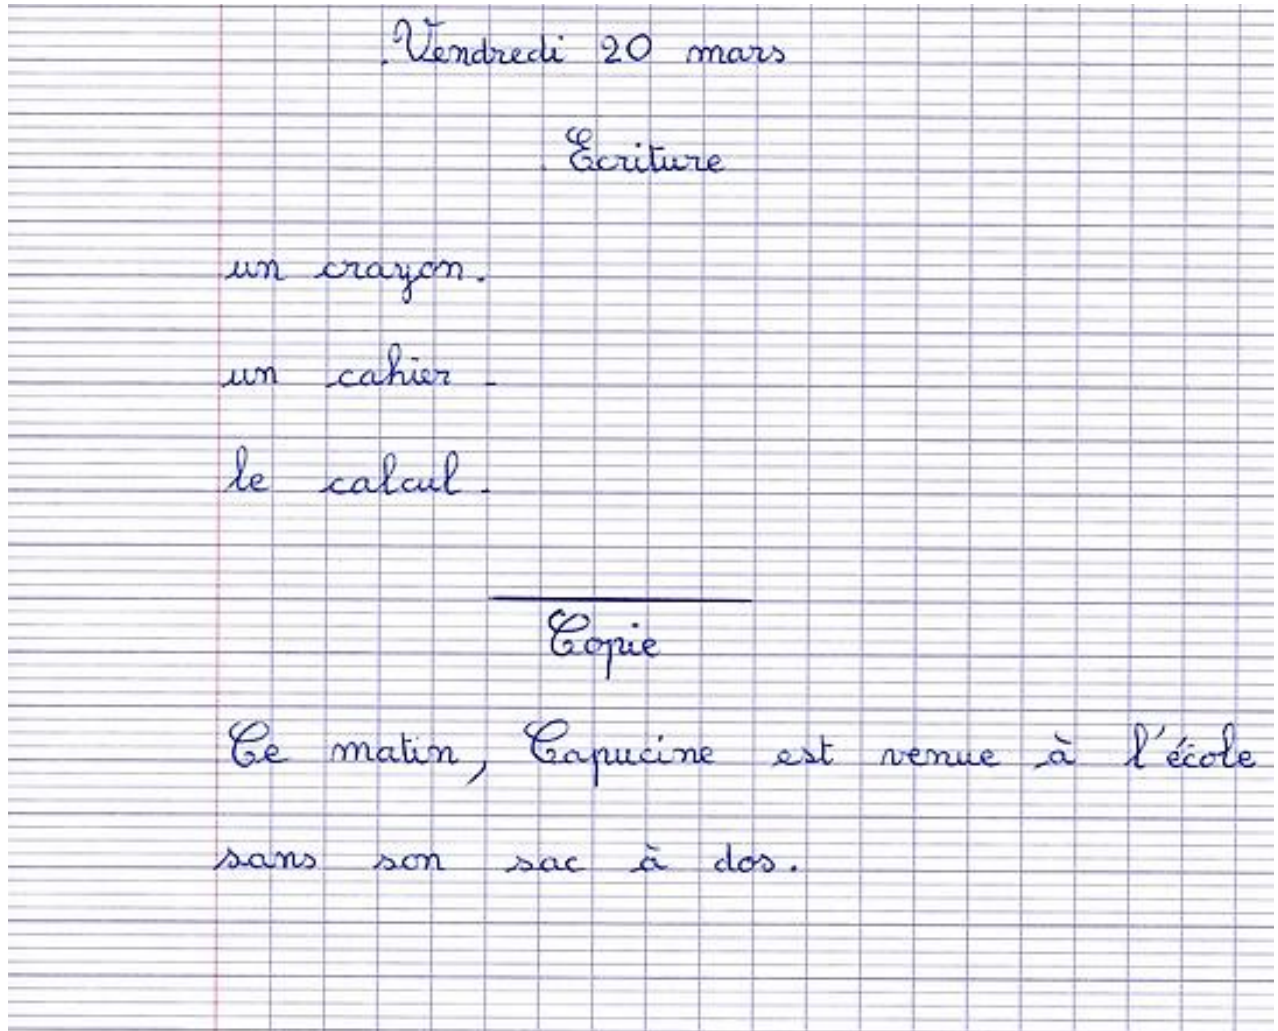 Vendredi 20 mars
Ecriture
un crayon.
un cahier.
le calcul.
Copie
Ce matin, Capucine est venue à l'école
sans son sac à dos.